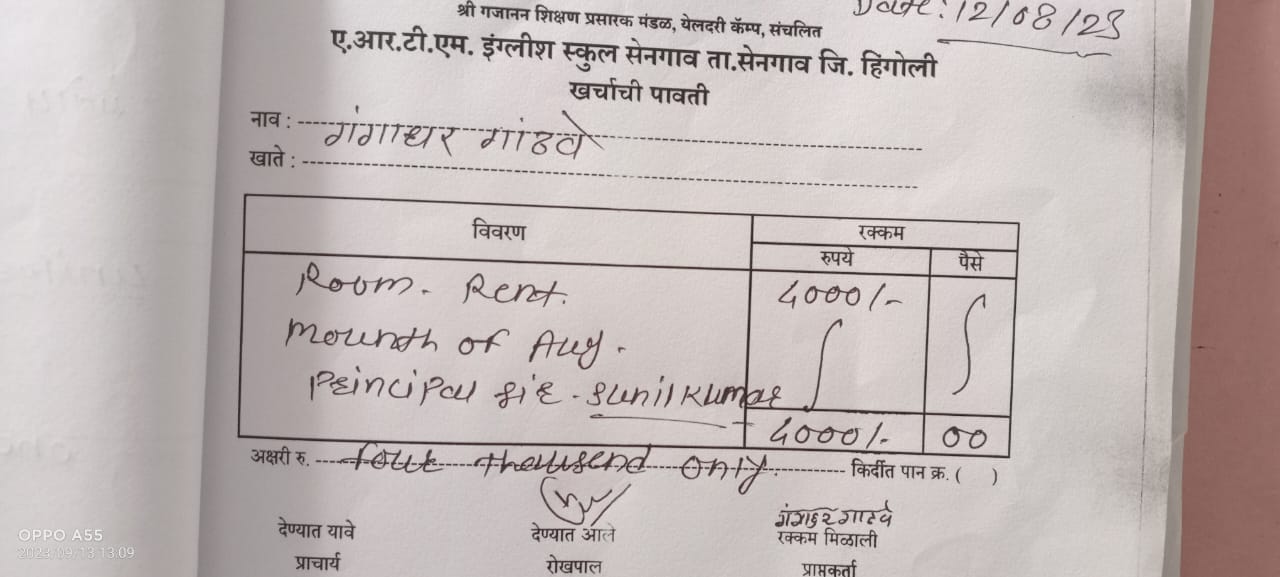 Date: 12/08/23
श्री गजानन शिक्षण प्रसारक मंडळ, येलदरी कॅम्प, संचलित
ए.आर.टी.एम. इंग्लीश स्कुल सेनगाव ता.सेनगाव जि. हिंगोली
खर्चाची पावती
नाव : गंगाधर गाढवे
खाते :
विवरण रक्कम
रुपये पैसे
Room. Rent. 4000/-
Mounth of Aug.
Principal sir - sunil Kumar
4000/- 00
अक्षरी रु. four thousend only. किर्दीत पान क्र. ( )
गंगाधर गाढवे
देण्यात यावे देण्यात आले रक्कम मिळाली
प्राचार्य रोखपाल प्राप्तकर्ता
OPPO A55
2023/09/13 13:09